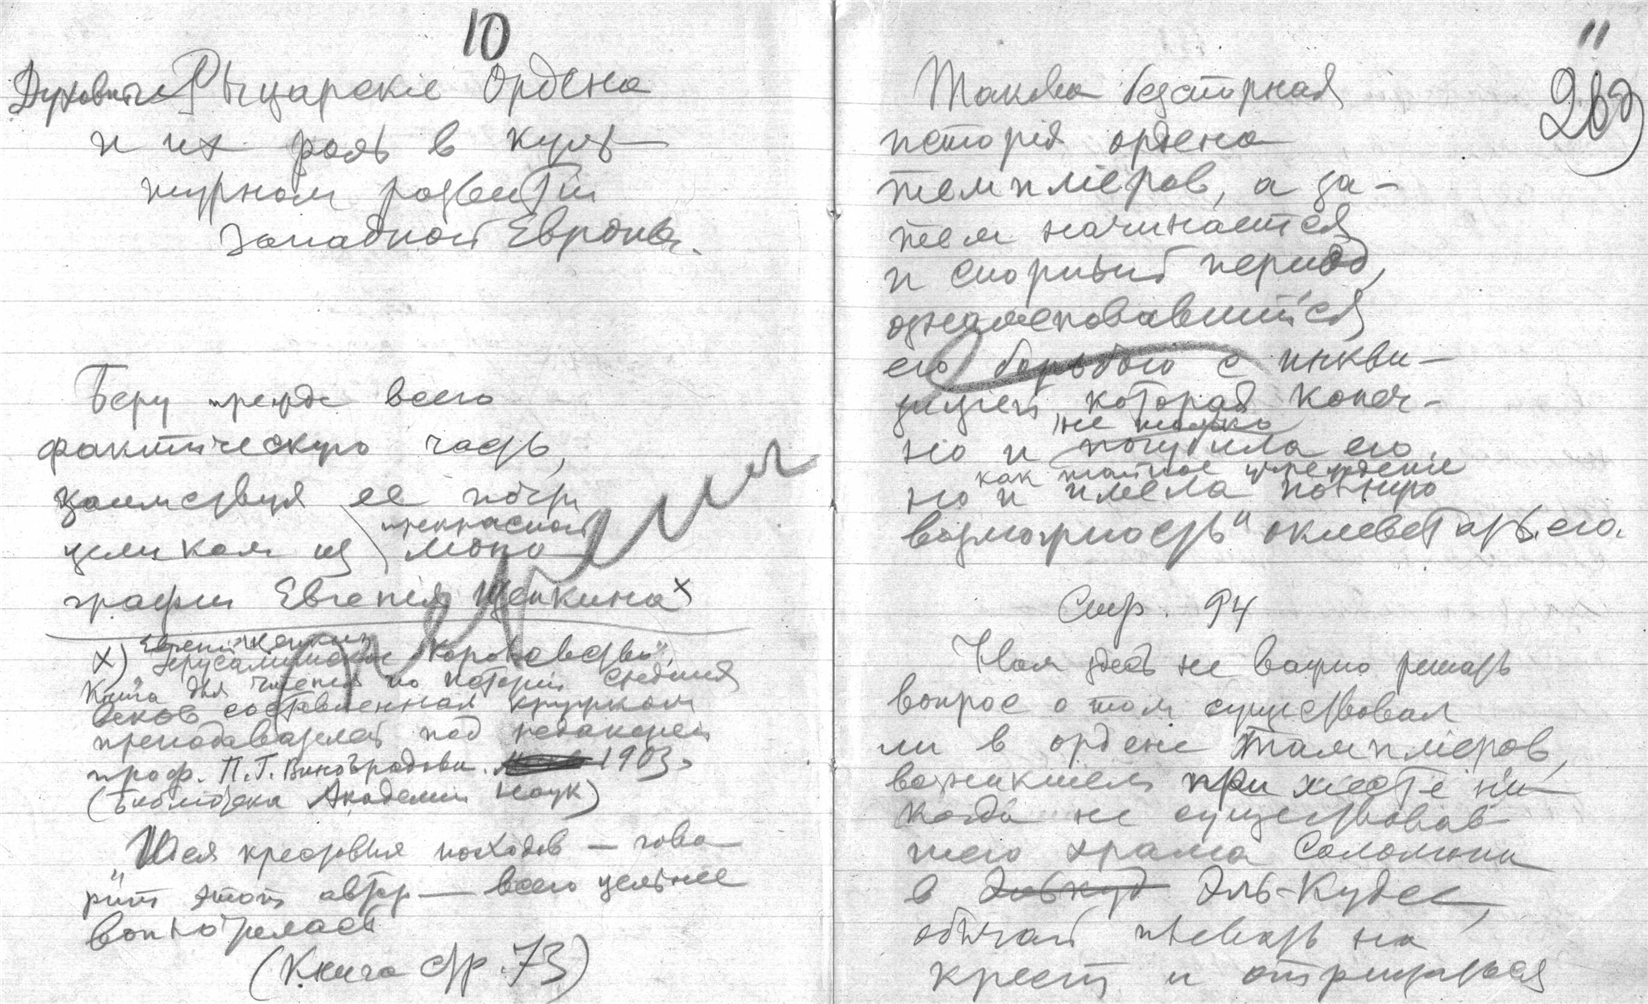 10
Духовные Рыцарские Ордена
и их роль в куль-
турном развитіи
Западной Европы.
Беру прежде всего
фактическую часть,
заимствуя ее почти
прекрасной
целиком из моно
графіи Евгенія Щепкина х
х) Евгений Щепкин
"Іерусалимское Королевство",
Книга для чтенія по исторіи средних
веков составленная кружком
преподавателей под редакцией
проф. П.Г. Виноградова. 1903.
(Библіотека Академии Наук)
"Идея крестовых походов — гово
рит этот автор — всего цельнее
вопло
(Книга стр. 73)
11
Такова безспорная
исторія ордена
темпліеров, а за-
тем начинается
и спорный період,
ознаменовавшійся
его борьбою с инкви-
зицией, которая конеч-
не только
но и погубила его,
как тайное учреждение
но и имела полную
возможность оклеветать его.
Стр. 94
Нам здесь не важно решать
вопрос о том существовал
ли в ордене Тамплиеров,
возникшем при месте ни-
когда не существовав
шего храма Соломона
в Элькуд Эль-Кудсе,
обычай плевать на
крест и отрицаться